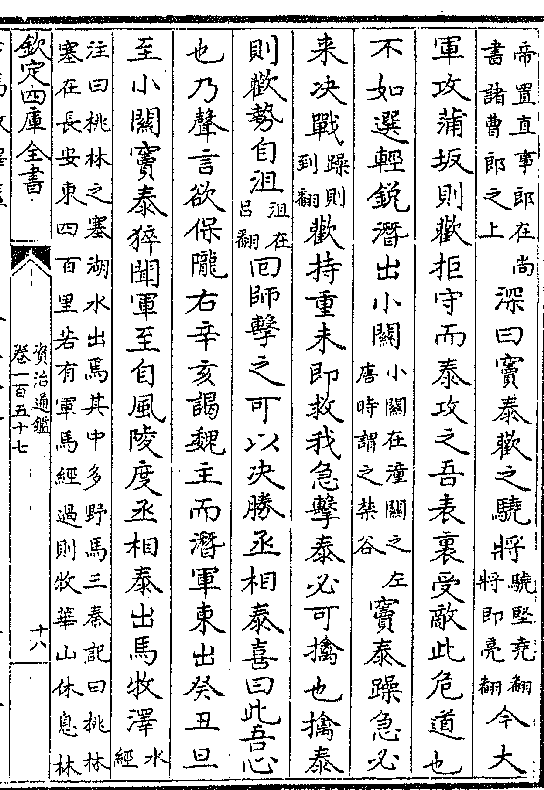 帝置直事郎在尚
書諸曹郎之上
深曰竇泰歡之驍將
驍堅堯翻
將即亮翻
今大
軍攻蒲坂則歡拒守而泰攻之吾表裏受敵此危道也
不如選輕銳潛出小關
小關在潼關之左
唐時謂之禁谷
竇泰躁急必
来決戰
躁則
到翻
歡持重未即救我急擊泰必可擒也擒泰
則歡勢自沮
沮在
呂翻
囘師擊之可以决勝丞相泰喜曰此吾心
也乃聲言欲保隴右辛亥謁魏主而潛軍東出癸丑旦
至小關竇泰猝聞軍至自風陵度丞相泰出馬牧澤
水
經
注曰桃林之塞湖水出焉其中多野馬三秦記曰桃林
塞在長安東四百里若有軍馬經過則牧華山休息林
欽定四庫全書
資治通鑑
卷一百五十七
十八